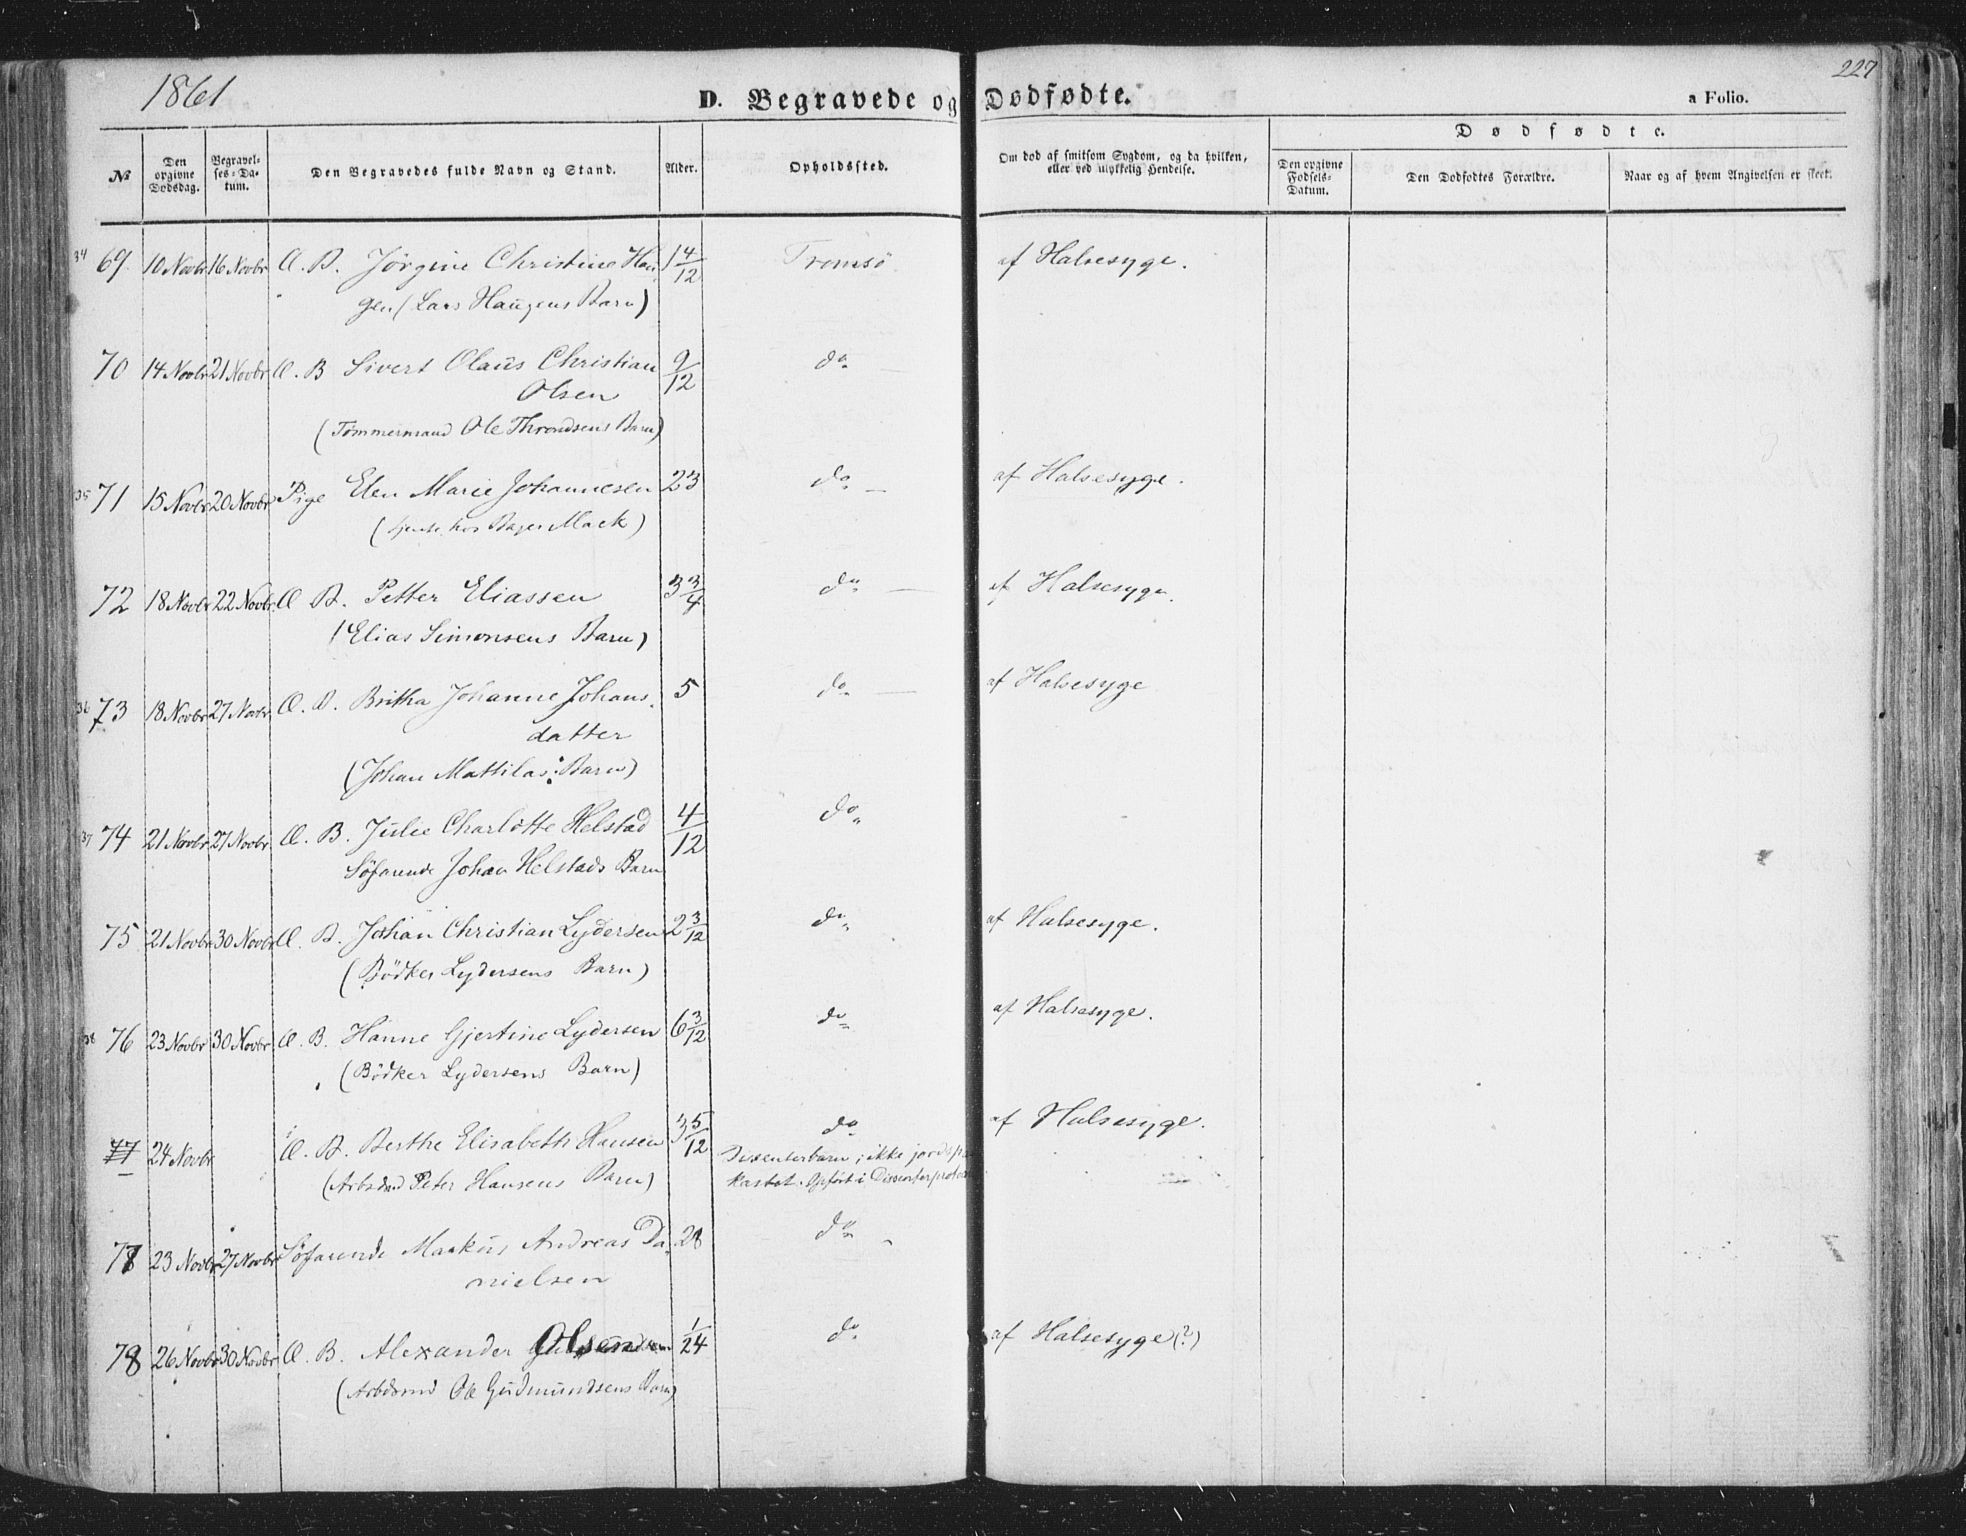 1861
D. Begravede og Dødfødte.
a Folio.
227
№
Den opgivne Dødsdag.
Begravelses-Datum.
Den Begravedes fulde Navn og Stand.
Alder.
Opholdssted.
Om død af smitsom Sygdom, og da hvilken, eller ved ulykkelig Hendelse.
Dødfødte.
Den opgivne Fødsels-Datum.
Den Dødfødtes Forældre.
Naar og af hvem Angivelsen er skeet.
34 69. 10 Novbr 16 Novbr Æ. B. Jörgine Christine Hau- 1 4/12 Tromsö af Halsesyge.
gen (Lars Haugens Barn)
70 14 Novbr 21 Novbr Æ. B Sivert Olaus Christian 9/12 do
Olsen
(Tömmermand Ole Throndsens Barn)
35 71 15 Novbr 20 Novbr Pige Elen Marie Johannesen 23 do — af Halsesyge.
( tjente hos Bager Mack)
72 18 Novbr 22 Novbr Æ B. Petter Eliassen 3 3/4 do — af Halsesyge.
(Elias Simonsens Barn)
36 73 18 Novbr 27 Novbr Æ. B. Britha Johanne Johans- 5 do — af Halsesyge
datter
(Johan Mattilas: Barn)
37 74 21 Novbr 27 Novbr Æ. B. Julie Charlotte Helstad 4/12 do
Söfarende Johan Helstads Barn
75 21 Novbr 30 Novbr Æ. B. Johan Christian Lydersen 2 3/12 do af Halsesyge.
(Bödker Lydersens Barn)
38 76 23 Novbr 30 Novbr Æ. B. Hanne Gjertine Lydersen 6 3/12 do af Halsesyge.
(Bödker Lydersens Barn)
77 24 Novbr Æ. B. Berthe Elisabeth Hansen 3 5/12 do af Halsesyge.
Dissenterbarn; ikke jordspa
(Arbdmd Peter Hansens Barn) kastet. Opfört i Dissenterprotoc
77 23 Novbr 27 Novbr Söfarende Markus Andreas Da- 28 do
nielsen
78 26 Novbr 30 Novbr Æ. B. Alexander Olsen 1/24 do af Halsesyge (?)
(Arbdsmd Ole Gudmundsens Barn)